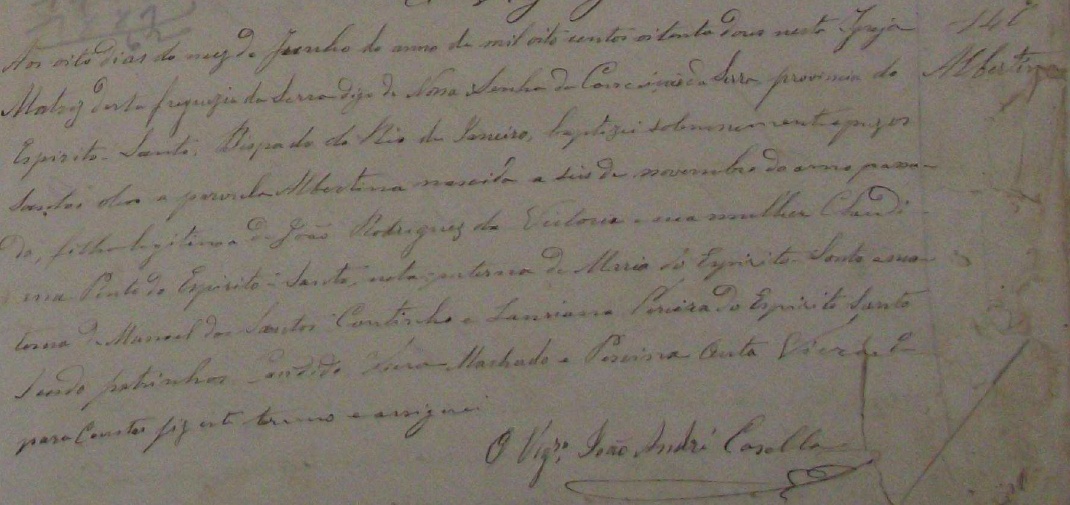 Aos oito dias do mez de Junho do anno de mil oito centos oitenta dous nesta Igreja
Matriz desta freguezia da Serra digo de Nossa Senhora da Conceição da Serra provincia do
Espirito-Santo, Bispado do Rio de Janeiro, baptizei solemnemente e puz os
Santos oleos a parvula Albertina nascida a seis de novembro do anno passa-
do, filha legitima de João Rodrigues da Victoria e sua mulher Claudi-
na do Espirito-Santo, neta paterna de Maria do Espirito-Santo e ma-
terna de Manoel dos Santos Coutinho e Lauriana Pereira do Espirito Santo
Sendo padrinhos Candido Machado e Vieira
para constar fiz este termo e assignei
O Vigrº João André Casella
Albertina